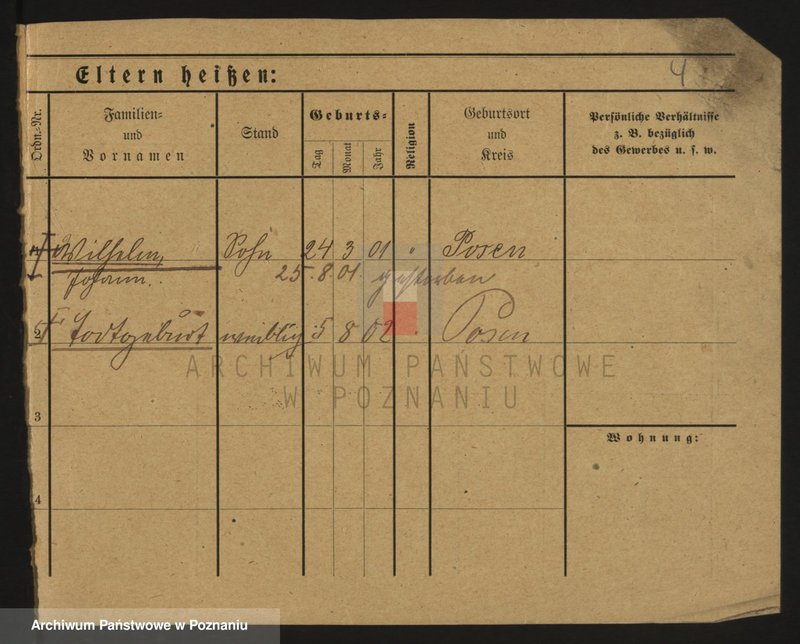 4
Eltern heißen:
Ordn.-Nr.
Familien-
und
Vornamen
Stand
Geburts-
Tag
Monat
Jahr
Religion
Geburtsort
und
Kreis
Persönliche Verhältnisse
z. B. bezüglich
des Gewerbes u. s. w.
Wilhelm, Sohn 24 3 01 " Posen
Johann. 25.8.01. gestorben
2 Todtgeburt weiblich 5 8 02 Posen
ARCHIWUM PAŃSTWOWE
W POZNANIU
3
Wohnung:
4
Archiwum Państwowe w Poznaniu